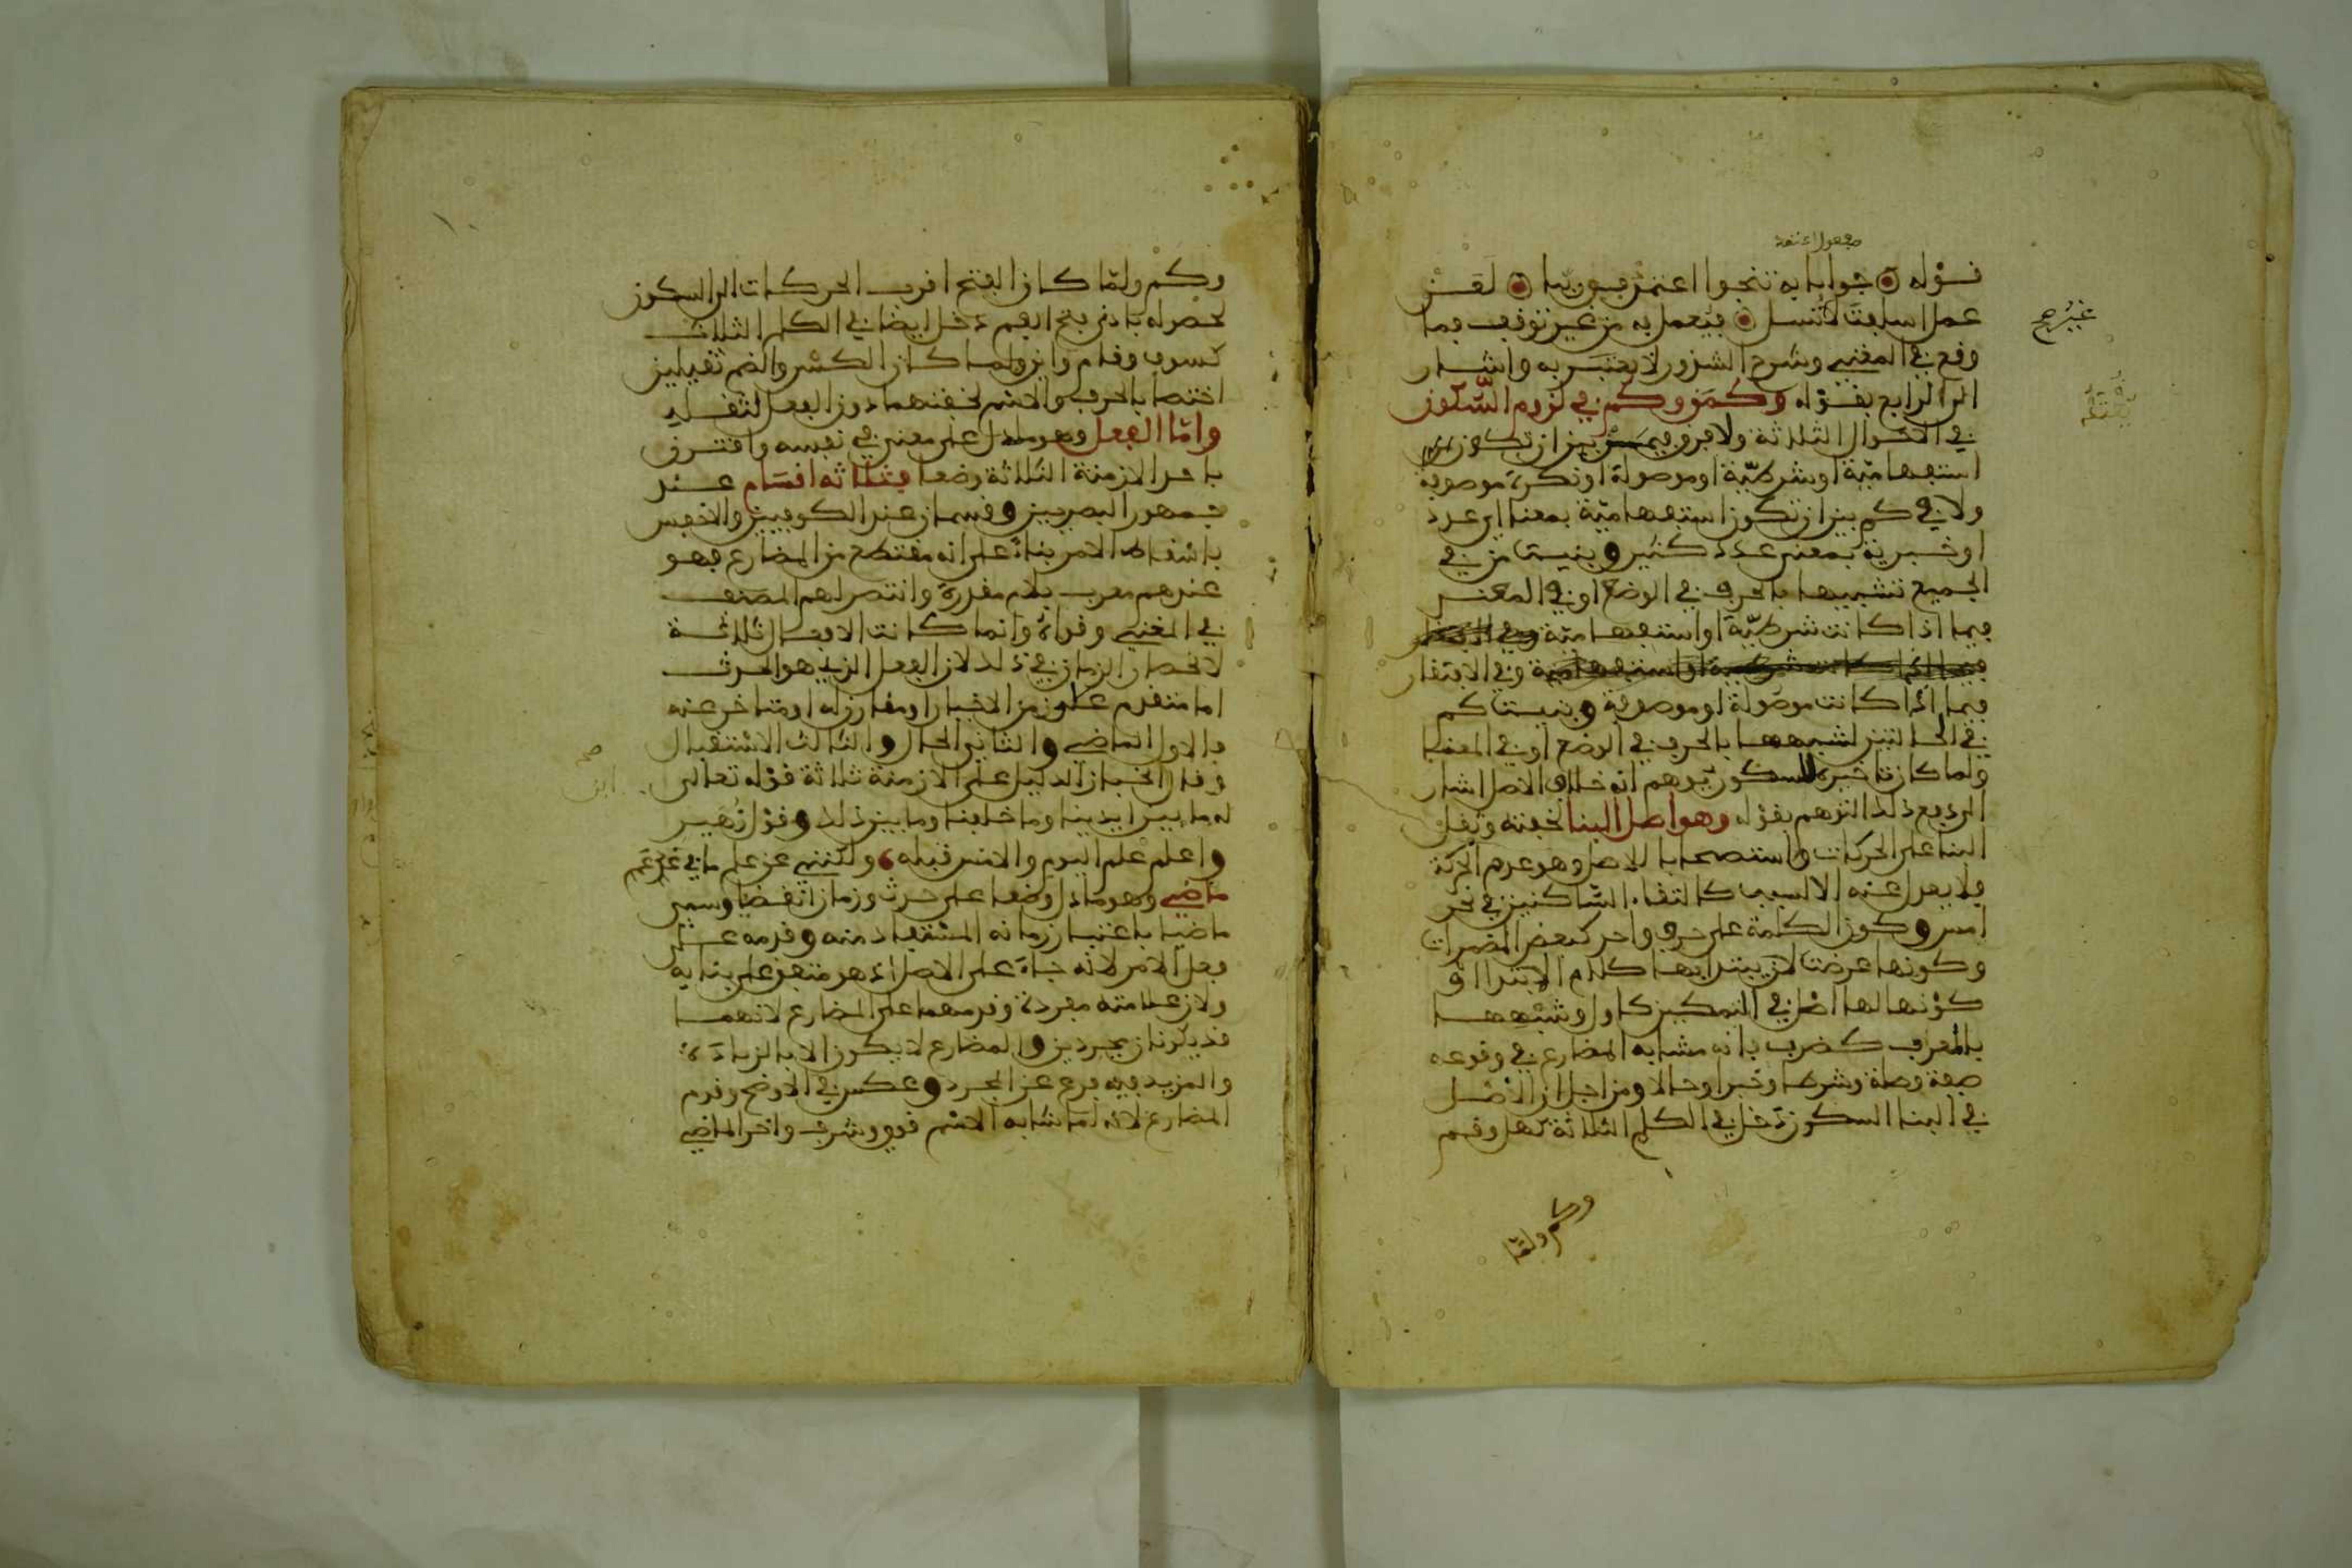 مفعول اعتمد
قوله جوابا به تنجوا اعتمد فوربنا لعن
عمل اسلفت لا تسل فيعمل به من غير توقف فما
غير هم
وقع في المغني وشرح الشذور لا يعتبر به واشار
الى الرابع بقوله وكمن وكم في لزوم السكون
في الاحوال الثلاثة ولا فرق في من بين ان تكون
استفهامية او شرطية او موصولة او نكرة موصوفة
ولا في كم بين ان تكون استفهامية بمعنى اي عدد
او خبرية بمعنى عدد كثير وبنيت من في
الجميع تشبيها بالحرف في الوضع او في المعنى
فيما اذا كانت شرطية او استفهامية
فيما اذا كانت شرطية او استفهامية وفي الافتقار
فيما اذا كانت موصولة او موصوفة وبنيت كم
في الحالتين لشبهها بالحرف في الوضع او في المعنى
ولما كان تاخيره للسكون يوهم انه خلاف الاصل اشار
الى دفع ذلك التوهم بقوله وهو اصل البنا لخفته وثقل
البنا على الحركات واستصحابا للاصل وهو عدم الحركة
فلا يعدل عنه الا لسبب كالتقاء الساكنين في نحو
امس وكون الكلمة على حرف واحد كبعض المضمرات
وكونها عرضة لان يبتدا بها كلام الابتدا او
كونها لها اصل في التمكين كاول وشبهها
بالمعرب كضرب بانه مشابه المضارع في وقوعه
صفة وصلة وشرطا وخبرا وحالا ومن اجل ان الاصل
في البنا السكون دخل في الكلم الثلاثة كهل وقم
وكم ولما
وكم ولما كان الفتح اقرب الحركات الى السكون
لحصوله بادنى فتح الفم دخل ايضا في الكلم الثلاث
كسوف وقام واين ولما كان الكسر والضم ثقيلين
اختصا بالحرف والاسم لخفتهما دون الفعل لثقله
واما الفعل وهو ما دل على معنى في نفسه واقترن
باحد الازمنة الثلاثة وضعا فثلاثة اقسام عند
جمهور البصريين وقسمان عند الكوفيين والاخفش
باسقاط الامر بناء على انه مقتطع من المضارع فهو
عندهم معرب بلام مقدرة وانتصر لهم المصنف
في المغني وقواه وانما كانت الافعال ثلاثة
لانحصار الزمان في ذلك لان الفعل الذي هو الحدث
اما متقدم على زمن الاخبار او مقارن له او متاخر عنه
فالاول الماضي والثاني الحال والثالث الاستقبال
صح
ابن
وقال الخباز الدليل على الازمنة ثلاثة قوله تعالى
له ما بين ايدينا وما خلفنا وما بين ذلك وقول زهير
واعلم علم اليوم والامس قبله ولكنني عن علم ما في غد عم
ماضي وهو ما دل وضعا على حدث وزمان انقضى وسمي
ماضيا باعتبار زمانه المستفاد منه وقدمه على
فعل الامر لانه جاء على الاصل اذ هو متفق على بنايه
ولان علامته مفردة وقدمهما على المضارع لانهما
قد يكونان مجردين والمضارع لا يكون الا بالزيادة
والمزيد فيه فرع عن المجرد وعكس في الاوضح وقدم
المضارع لانه لما شابه الاسم قوي وشرف واخر الماضي